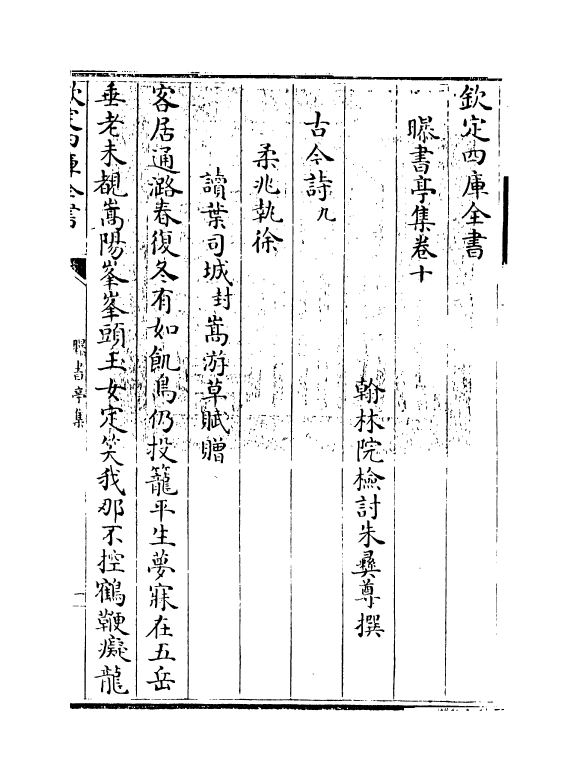 欽定四庫全書
曝書亭集卷十
翰林院檢討朱彞尊撰
古今詩九
柔兆執徐
讀葉司城封嵩游草賦贈
客居通潞春復冬有如飢鳥仍投籠平生夢寐在五岳
垂老未覩嵩陽峯峯頭玉女定笑我那不控鶴鞭癡龍
欽定四庫全書
曝書亭集
一